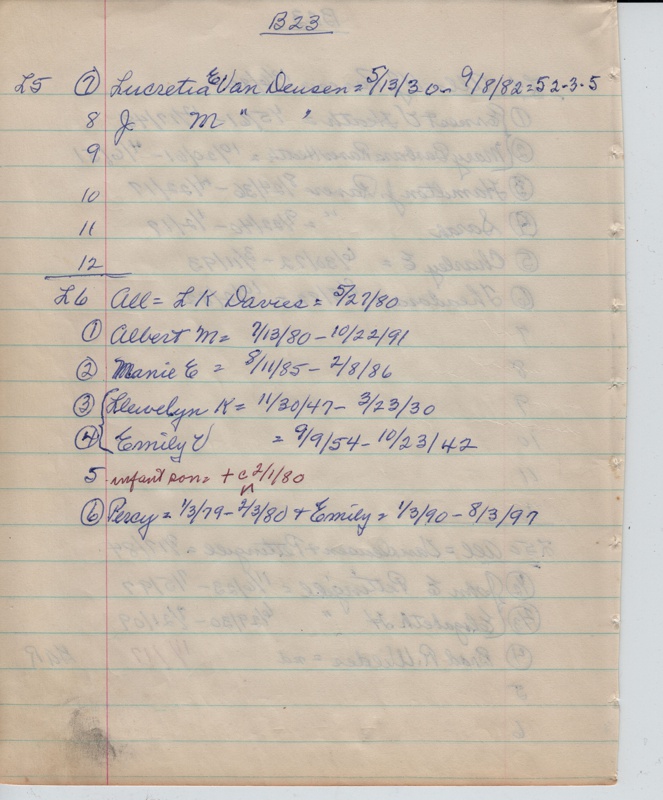 B23
L5 (7) Lucretia E Van Deusen = 5/13/30 - 9/8/82 = 52-3-5
8 J M " "
9
10
11
12
L6 All = L K Davies = 5/27/80
(1) Albert M = 7/13/80 - 10/22/91
(2) Manie E = 8/11/85 - 2/8/86
(3) Llewelyn K = 11/30/47 - 3/23/30
(4) Emily V = 9/9/54 - 10/23/42
5 infant son = + c 2/1/80
(6) Percy = 1/3/79 - 2/3/80 + Emily = 1/3/90 - 8/3/97